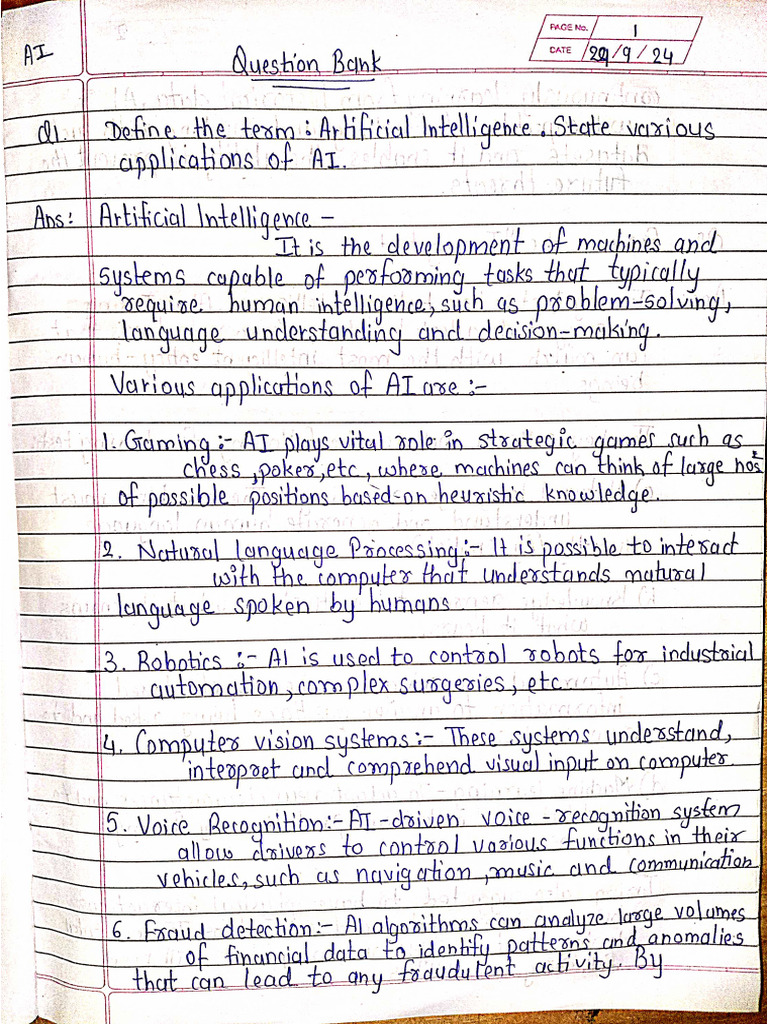 PAGE No. 1
DATE 29/9/24
AI
Question Bank
Q1 Define the term: Artificial Intelligence. State various
applications of AI.
Ans: Artificial Intelligence –
It is the development of machines and
systems capable of performing tasks that typically
require human intelligence, such as problem-solving,
language understanding and decision-making.
Various applications of AI are :-
1. Gaming :- AI plays vital role in strategic games such as
chess, poker, etc, where machines can think of large nos
of possible positions based-on heuristic knowledge.
2. Natural language Processing :- It is possible to interact
with the computer that understands natural
language spoken by humans
3. Robotics :- AI is used to control robots for industrial
automation, complex surgeries, etc
4. Computer vision systems :- These systems understand,
interpret and comprehend visual input on computer.
5. Voice Recognition :- AI-driven voice-recognition system
allow drivers to control various functions in their
vehicles, such as navigation, music and communication
6. Fraud detection :- AI algorithms can analyze large volumes
of financial data to identify patterns and anomalies
that can lead to any fraudulent activity. By